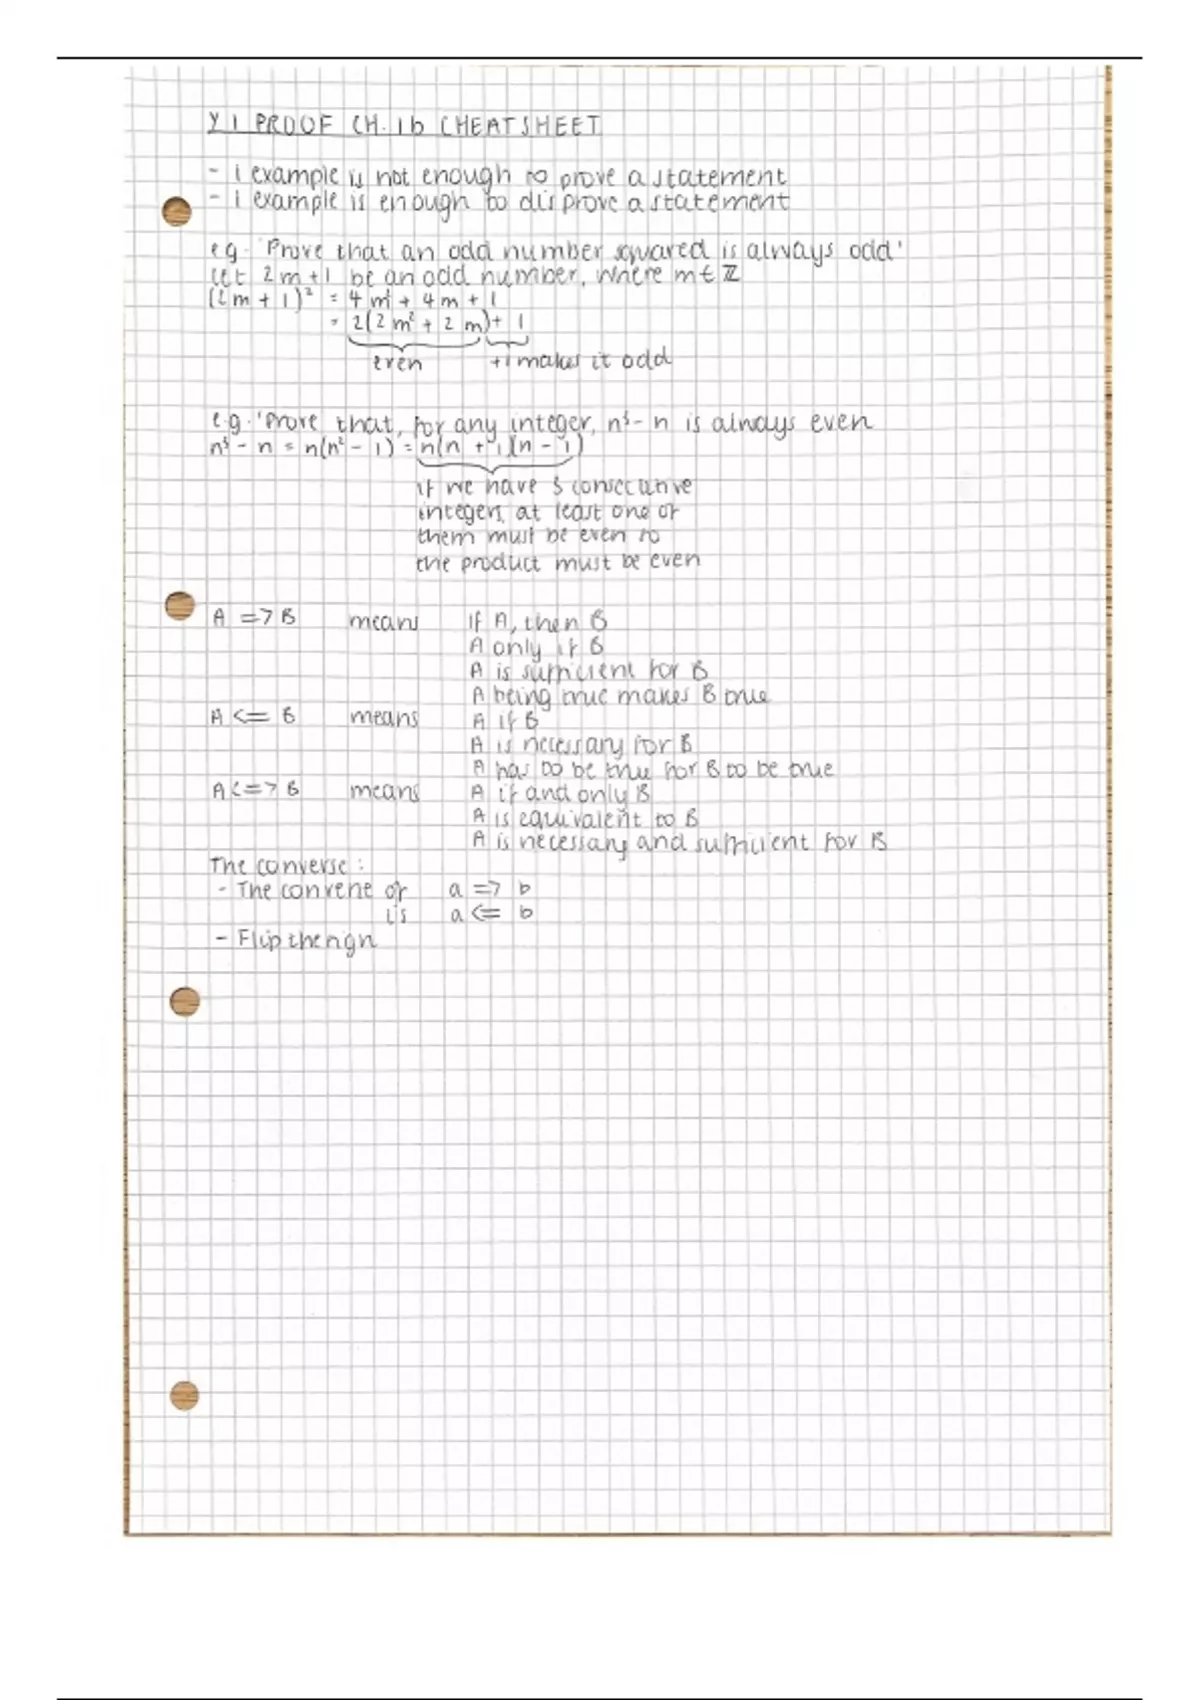 Y1 PROOF CH.1b CHEATSHEET
- 1 example is not enough to prove a statement
- 1 example is enough to disprove a statement
eg. 'Prove that an odd number squared is always odd'
let 2m+1 be an odd number, where m∈ℤ
(2m + 1)² = 4m² + 4m + 1
= 2(2m² + 2m) + 1
even +1 makes it odd
e.g. 'Prove that, for any integer, n³ - n is always even
n³ - n = n(n² - 1) = n(n + 1)(n - 1)
if we have 3 consecutive
integers, at least one of
them must be even so
the product must be even
A => B means If A, then B
A only if B
A is sufficient for B
A being true makes B true
A <= B means A if B
A is necessary for B
A has to be true for B to be true
A <=> B means A if and only B
A is equivalent to B
A is necessary and sufficient for B
The converse:
- The converse of a => b
is a <= b
- Flip the sign